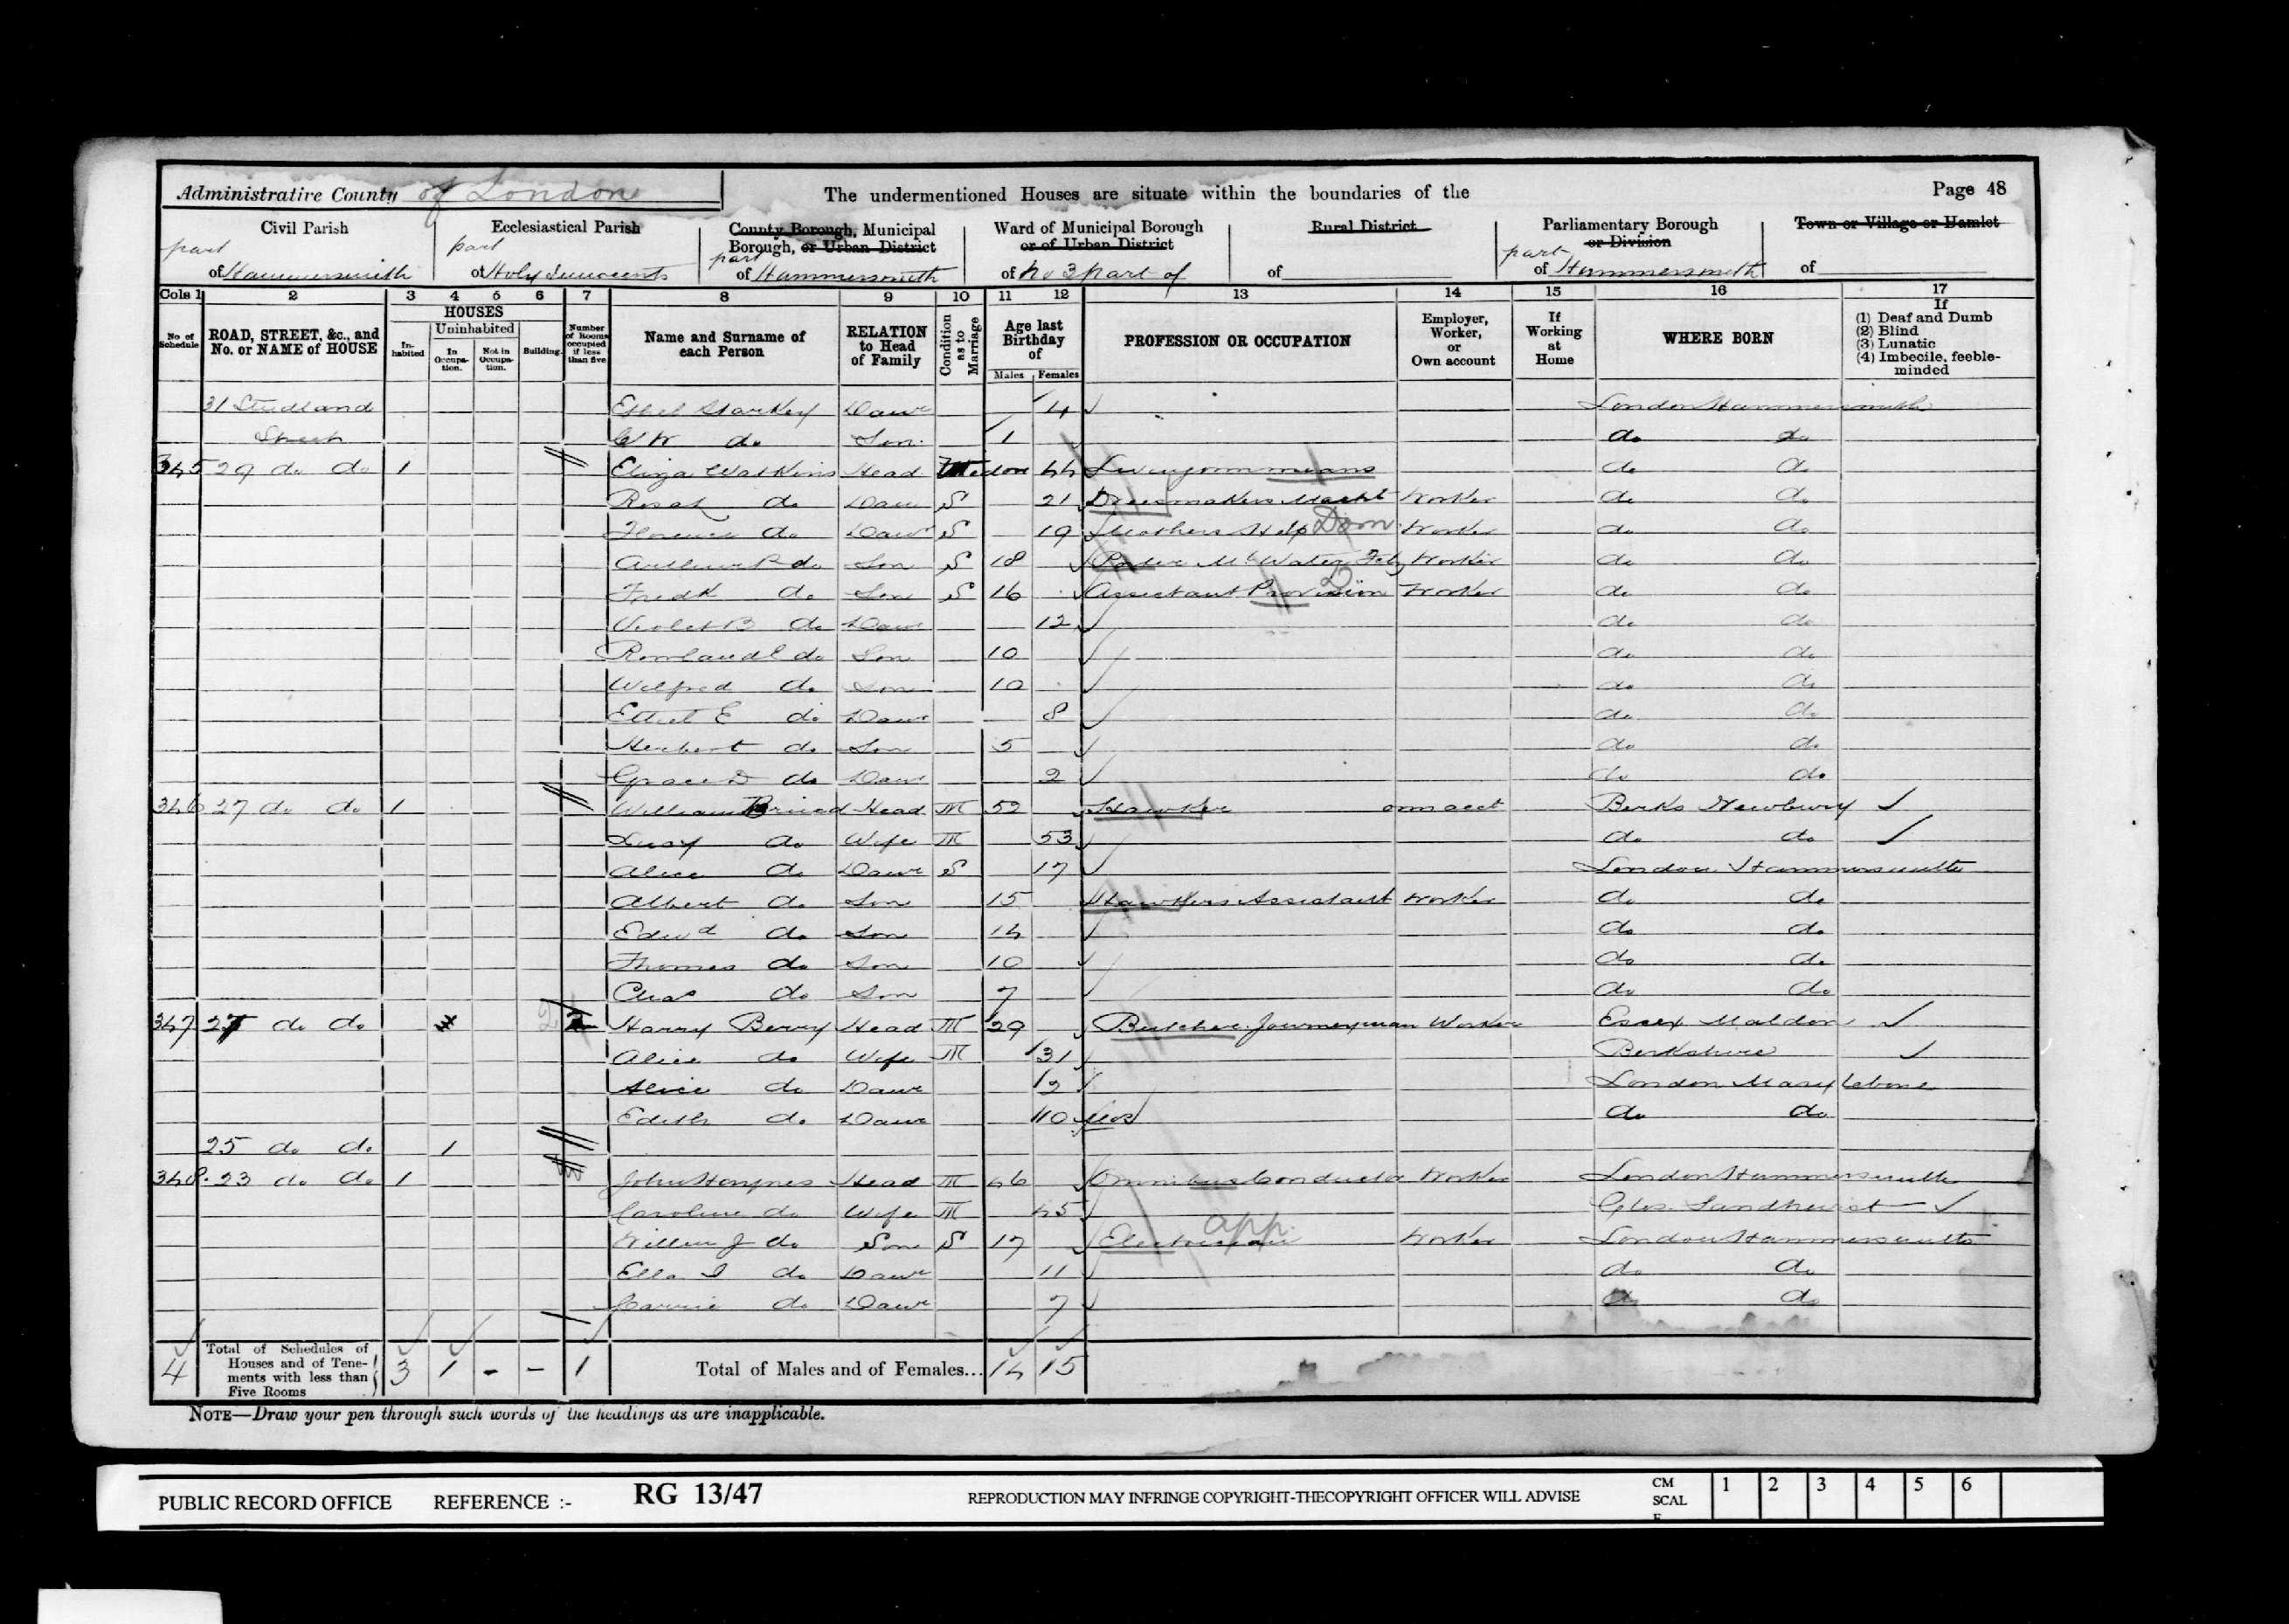 Administrative County of London The undermentioned Houses are situate within the boundaries of the Page 48
Civil Parish Ecclesiastical Parish County Borough, Municipal Borough, or Urban District Ward of Municipal Borough or of Urban District Rural District Parliamentary Borough or Division Town or Village or Hamlet
part of Hammersmith part of Holy Innocents part of Hammersmith of No 3 part of of part of Hammersmith of
Cols 1 2 3 4 5 6 7 8 9 10 11 12 13 14 15 16 17
No of Schedule ROAD, STREET, &c., and No. or NAME of HOUSE HOUSES Inhabited Uninhabited In Occupation. Not in Occupation. Building. Number of Rooms occupied if less than five Name and Surname of each Person RELATION to Head of Family Condition as to Marriage Age last Birthday of Males Females PROFESSION OR OCCUPATION Employer, Worker, or Own account If Working at Home WHERE BORN If (1) Deaf and Dumb (2) Blind (3) Lunatic (4) Imbecile, feeble-minded
31 Studland Ethel Starkey Daur 4 London Hammersmith
Street W do Son 1 do do
345 29 do do 1 Eliza Watkins Head 44 Living on means do do
do Daur S 21 Dressmakers Worker do do
Florence do Daur S 19 Mothers Help Dom Worker do do
do Son S 18 Worker do do
Fredk do Son S 16 Assistant Provision Worker do do
Violet B do Daur 12 do do
do Son 10 do do
Wilfred do Son 10 do do
Ethel E do Daur 8 do do
Herbert do Son 5 do do
Grace D do Daur 2 do do
346 27 do do 1 William Head M 52 Hawker own acct Berks Newbury
Lucy do Wife M 53 do do
Alice do Daur S 17 London Hammersmith
Albert do Son 15 Hawkers Assistant Worker do do
Edwd do Son 14 do do
Thomas do Son 10 do do
Chas do Son 7 do do
347 27 do do Harry Berry Head M 29 Butcher Journeyman Worker Essex Maldon
Alice do Wife M 31 Berkshire
Alice do Daur 2 London Marylebone
Edith do Daur 10 mos do do
25 do do 1
348 23 do do 1 John Head M 46 Omnibus Conductor Worker London Hammersmith
Caroline do Wife M 45 Glos. Sandhurst
do Son S 17 Electrician app. Worker London Hammersmith
Ella do Daur 11 do do
Carrie do Daur 7 do do
4 Total of Schedules of Houses and of Tenements with less than Five Rooms 3 1 - - 1 Total of Males and of Females... 14 15
NOTE—Draw your pen through such words of the headings as are inapplicable.
PUBLIC RECORD OFFICE REFERENCE :- RG 13/47 REPRODUCTION MAY INFRINGE COPYRIGHT-THECOPYRIGHT OFFICER WILL ADVISE CM SCAL E 1 2 3 4 5 6